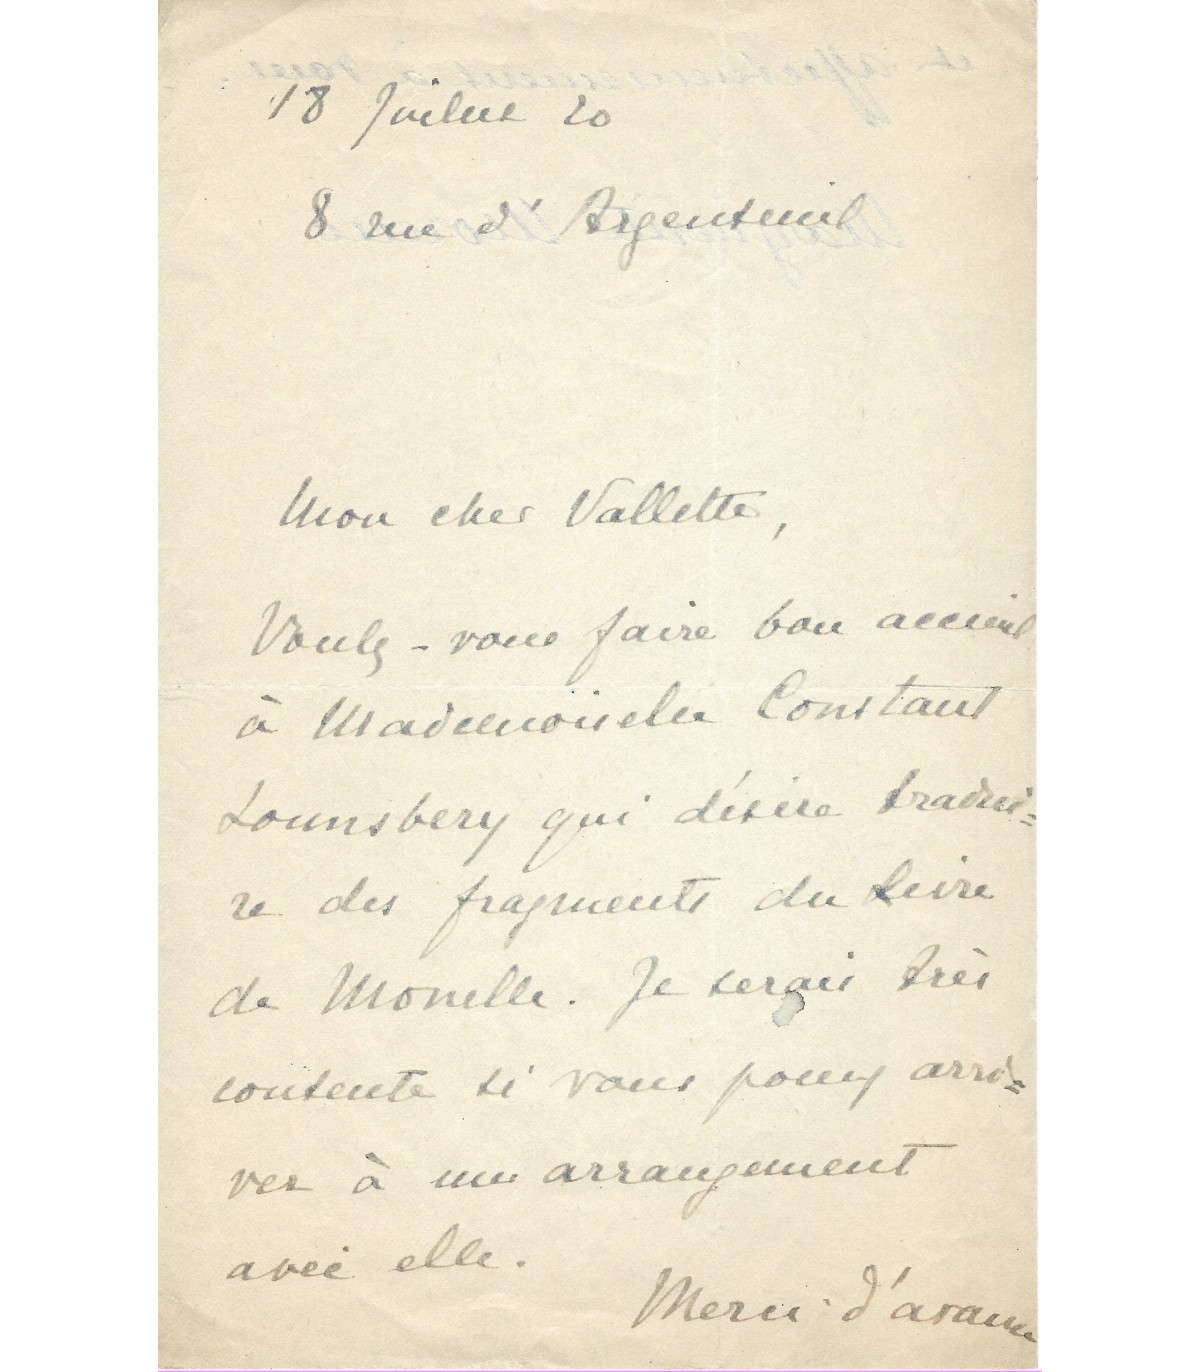 18 Juillet 20
8 rue d'Argenteuil
Mon cher Vallette,
Voulez-vous faire bon accueil
à Mademoiselle Constant
Lounsbery qui désire tradui=
re des fragments du Livre
de Monelle. Je serais très
contente si vous pouvez arri=
ver à un arrangement
avec elle.
Merci d'avance
et affectueusement à vous.